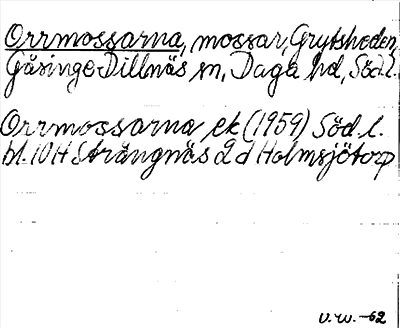 Orrmossarna, mossar, Grytsheden,
Gåsinge-Dillnäs sn, Daga hd, Södl.
Orrmossarna ek (1959) Söd. l.
bl. 10H Strängnäs 2 d Holmsjötorp
V.W.-62